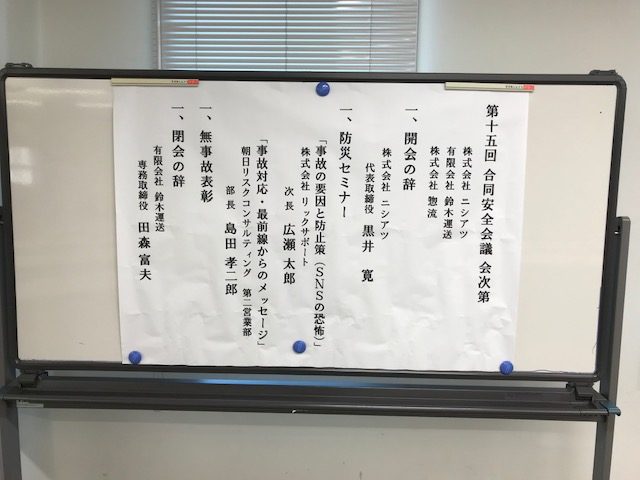 第十五回 合同安全会議 会次第
株式会社 ニシアツ
有限会社 鈴木運送
株式会社 惣流
一、開会の辞
株式会社 ニシアツ
代表取締役 黒井 寛
一、防災セミナー
「事故の要因と防止策（ＳＮＳの恐怖）」
株式会社 リックサポート
次長 広瀬 太郎
「事故対応・最前線からのメッセージ」
朝日リスクコンサルティング 第二営業部
部長 島田 孝二郎
一、無事故表彰
一、閉会の辞
有限会社 鈴木運送
専務取締役 田森 富夫